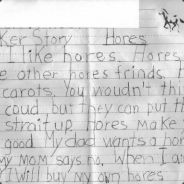 ker Story Hores
I like hores. Hores
e other hores frinds. I
carots. You woudn't thi
coud, but they can put th
strait up. Hores make
good My dad wants a hor
my mom says no. When I a
I will buy my own hores